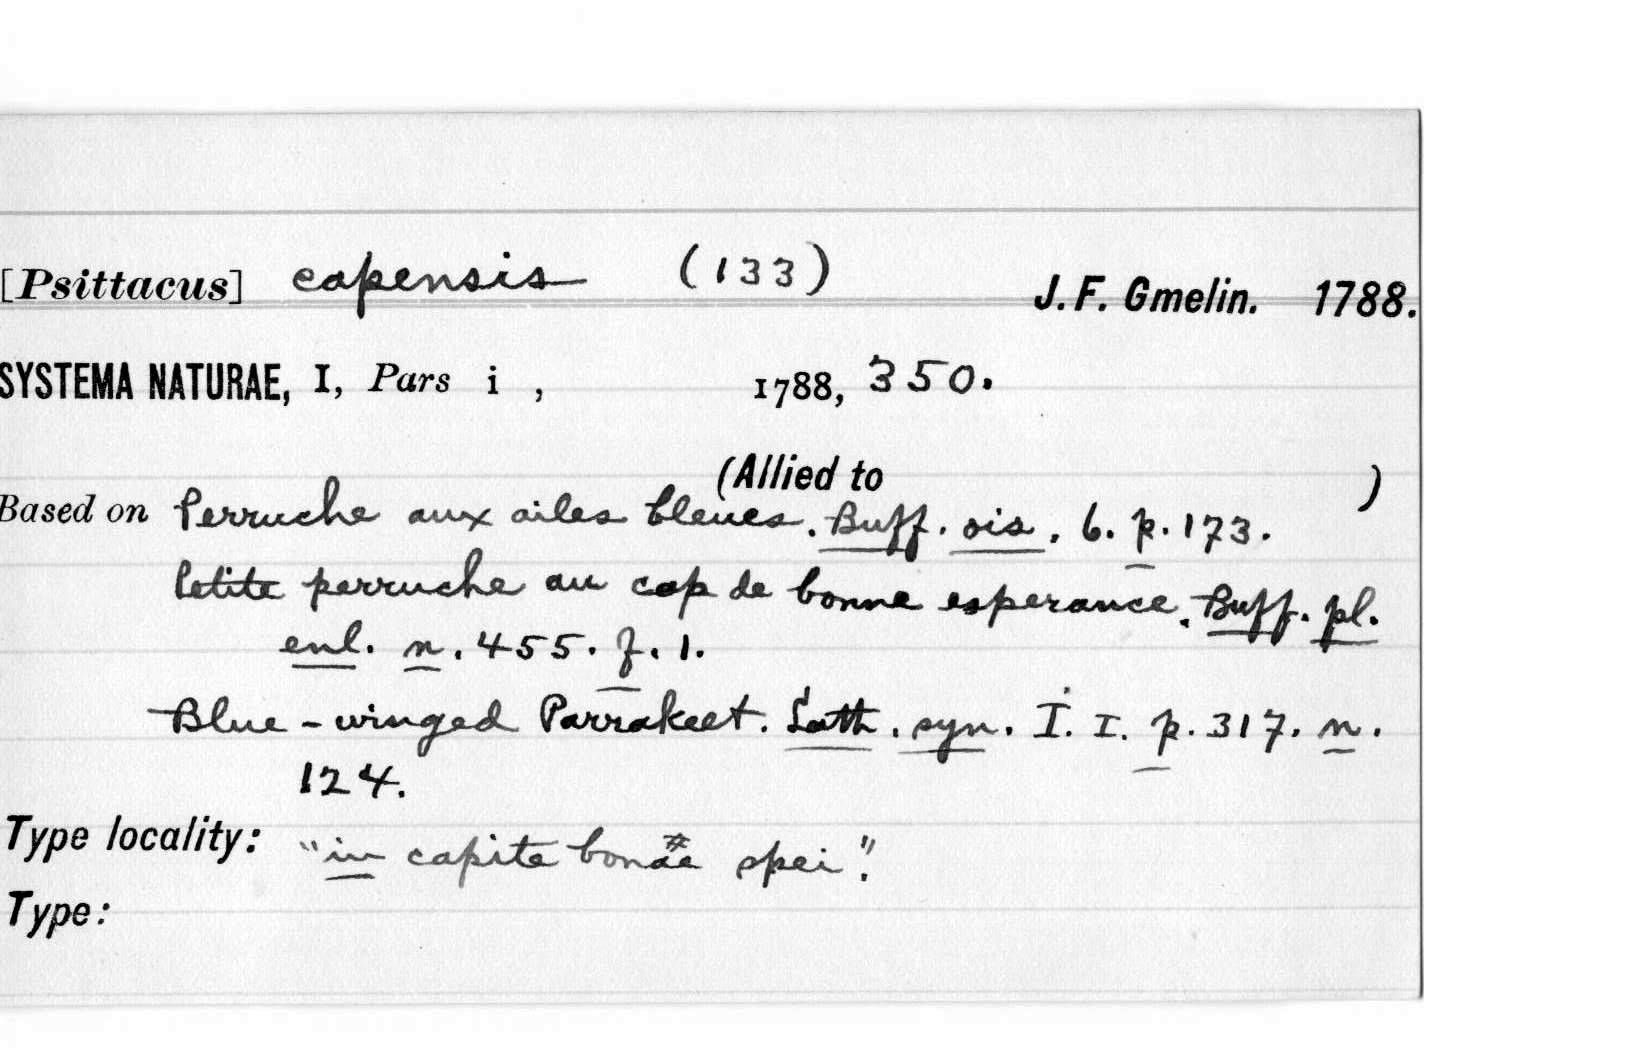 [Psittacus] capensis (133) J. F. Gmelin. 1788.
SYSTEMA NATURAE, I, Pars i , 1788, 350.
(Allied to )
Based on Perruche aux ailes bleues. Buff. ois. 6. p. 173.
Petite perruche au cap de bonne esperance. Buff. pl.
enl. n. 455. f. 1.
Blue-winged Parrakeet. Lath. syn. I. I. p. 317. n.
124.
Type locality: "in capite bonae spei".
Type: